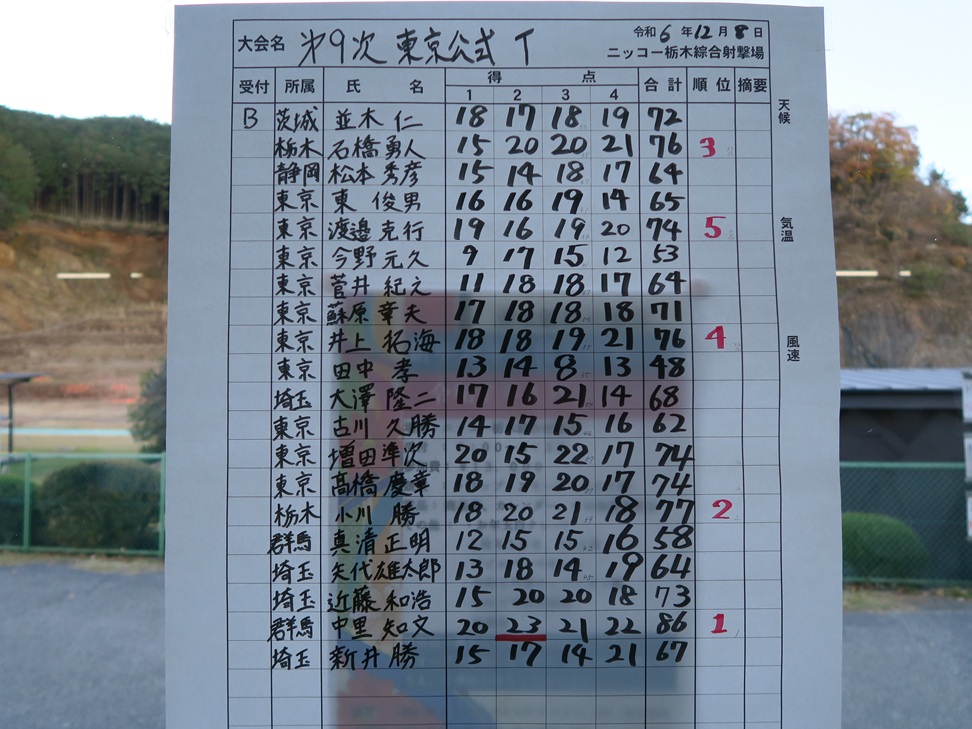 大会名 第9次 東京公式 T 令和6年12月8日
ニッコー栃木綜合射撃場
受付 所属 氏名 得点 合計 順位 摘要
1 2 3 4
B 茨城 並木 仁 18 17 18 19 72
栃木 石橋勇人 15 20 20 21 76 3
静岡 松本秀彦 15 14 18 17 64
東京 東 俊男 16 16 19 14 65
東京 渡邉克行 19 16 19 20 74 5
東京 今野元久 9 17 15 12 53
東京 菅井紀之 11 18 18 17 64
東京 蘇原幸夫 17 18 18 18 71
東京 井上拓海 18 18 19 21 76 4
東京 田中 孝 13 14 8 13 48
埼玉 大澤隆二 17 16 21 14 68
東京 古川久勝 14 17 15 16 62
東京 増田準次 20 15 22 17 74
東京 髙橋慶幸 18 19 20 17 74
栃木 小川 勝 18 20 21 18 77 2
群馬 真清正明 12 15 15 16 58
埼玉 矢代雄太郎 13 18 14 19 64
埼玉 近藤和浩 15 20 20 18 73
群馬 中里知文 20 23 21 22 86 1
埼玉 新井勝 15 17 14 21 67
天候
気温
風速